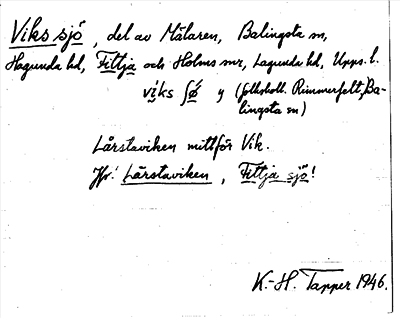 Vikssjö, del av Mälaren, Balingsta sn,
Hagunda hd, Fittja och Holms snr, Lagunda hd, Upps. l.
viks ʃǿ y (folkskoll. Rimmerfelt, Ba-
lingsta sn)
Lårstaviken mittför Vik.
Jfr: Lårstaviken, Fittja sjö!
K.-H. Tapper 1946.